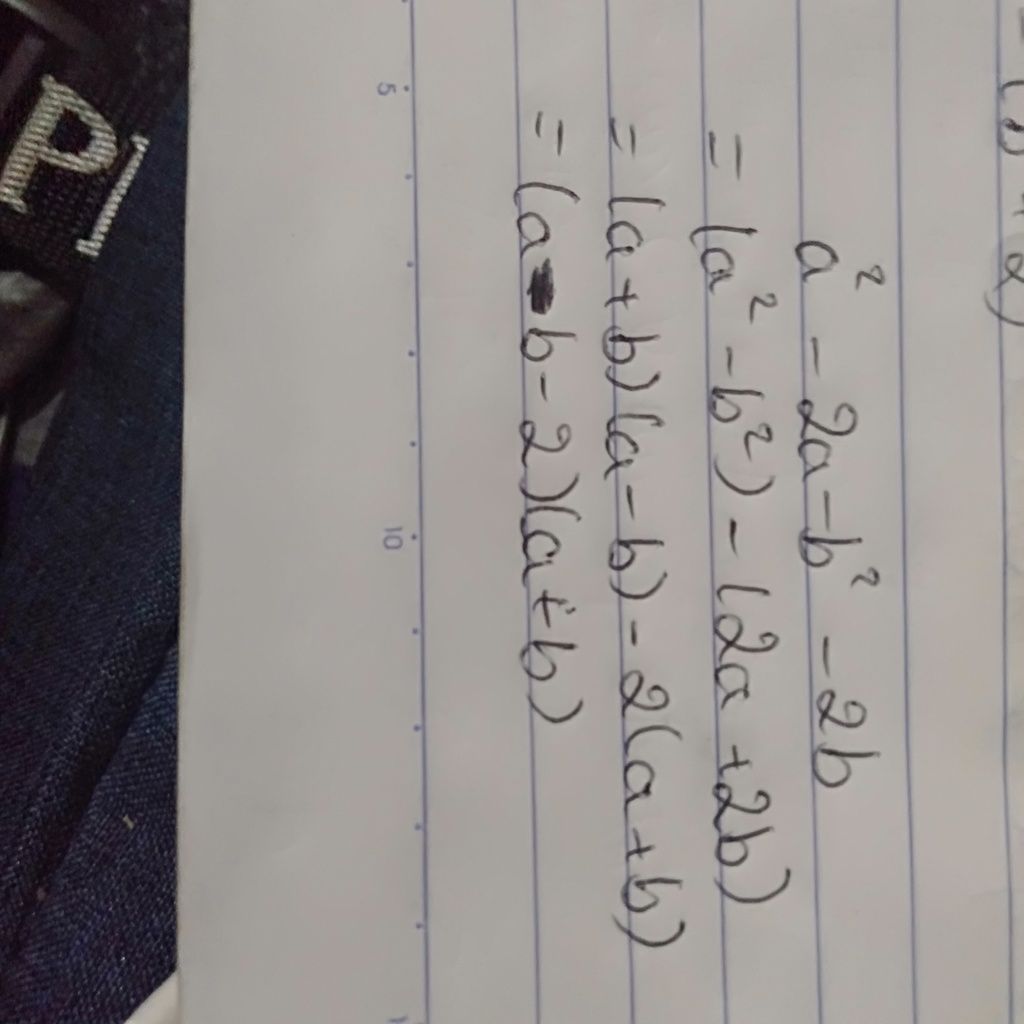 (b + 2)
a² - 2a - b² - 2b
= (a² - b²) - (2a + 2b)
= (a + b)(a - b) - 2(a + b)
= (a - b - 2)(a + b)
5
10
P